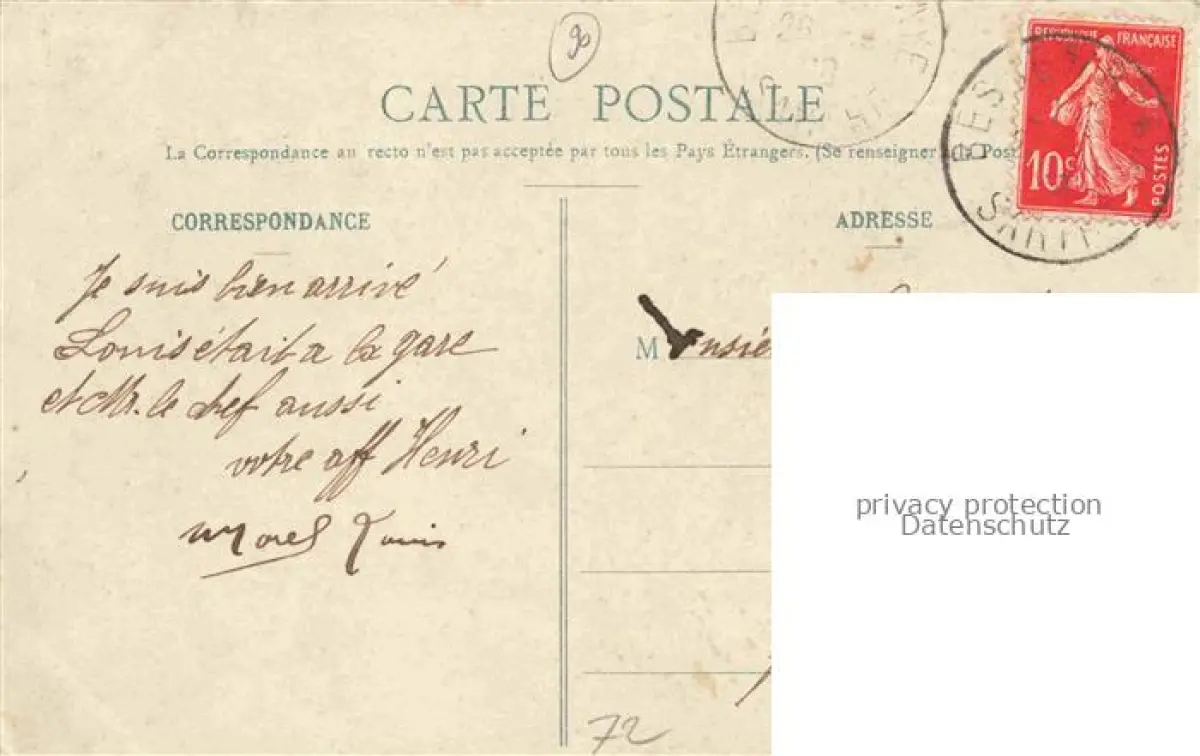 90
CARTE POSTALE
La Correspondance au recto n'est pas acceptée par tous les Pays Étrangers. (Se renseigner à la Post
RÉPUBLIQUE FRANÇAISE
10c
POSTES
BES
SARTHE
CORRESPONDANCE
ADRESSE
Je suis bien arrivé
Louis était a la gare
et Mr. le chef aussi
votre aff Henri
Morel Louis
Monsie
privacy protection
Datenschutz
72